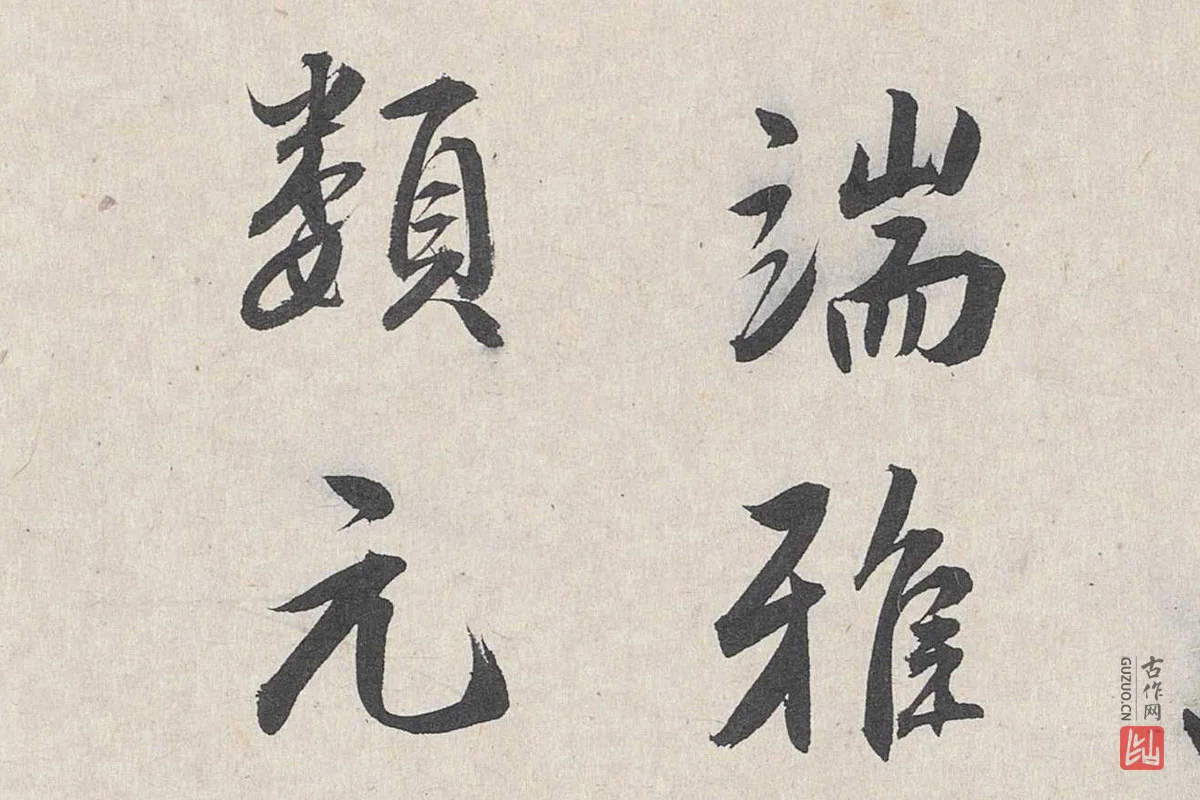 端雅
類元
古作网
GUZUO.CN